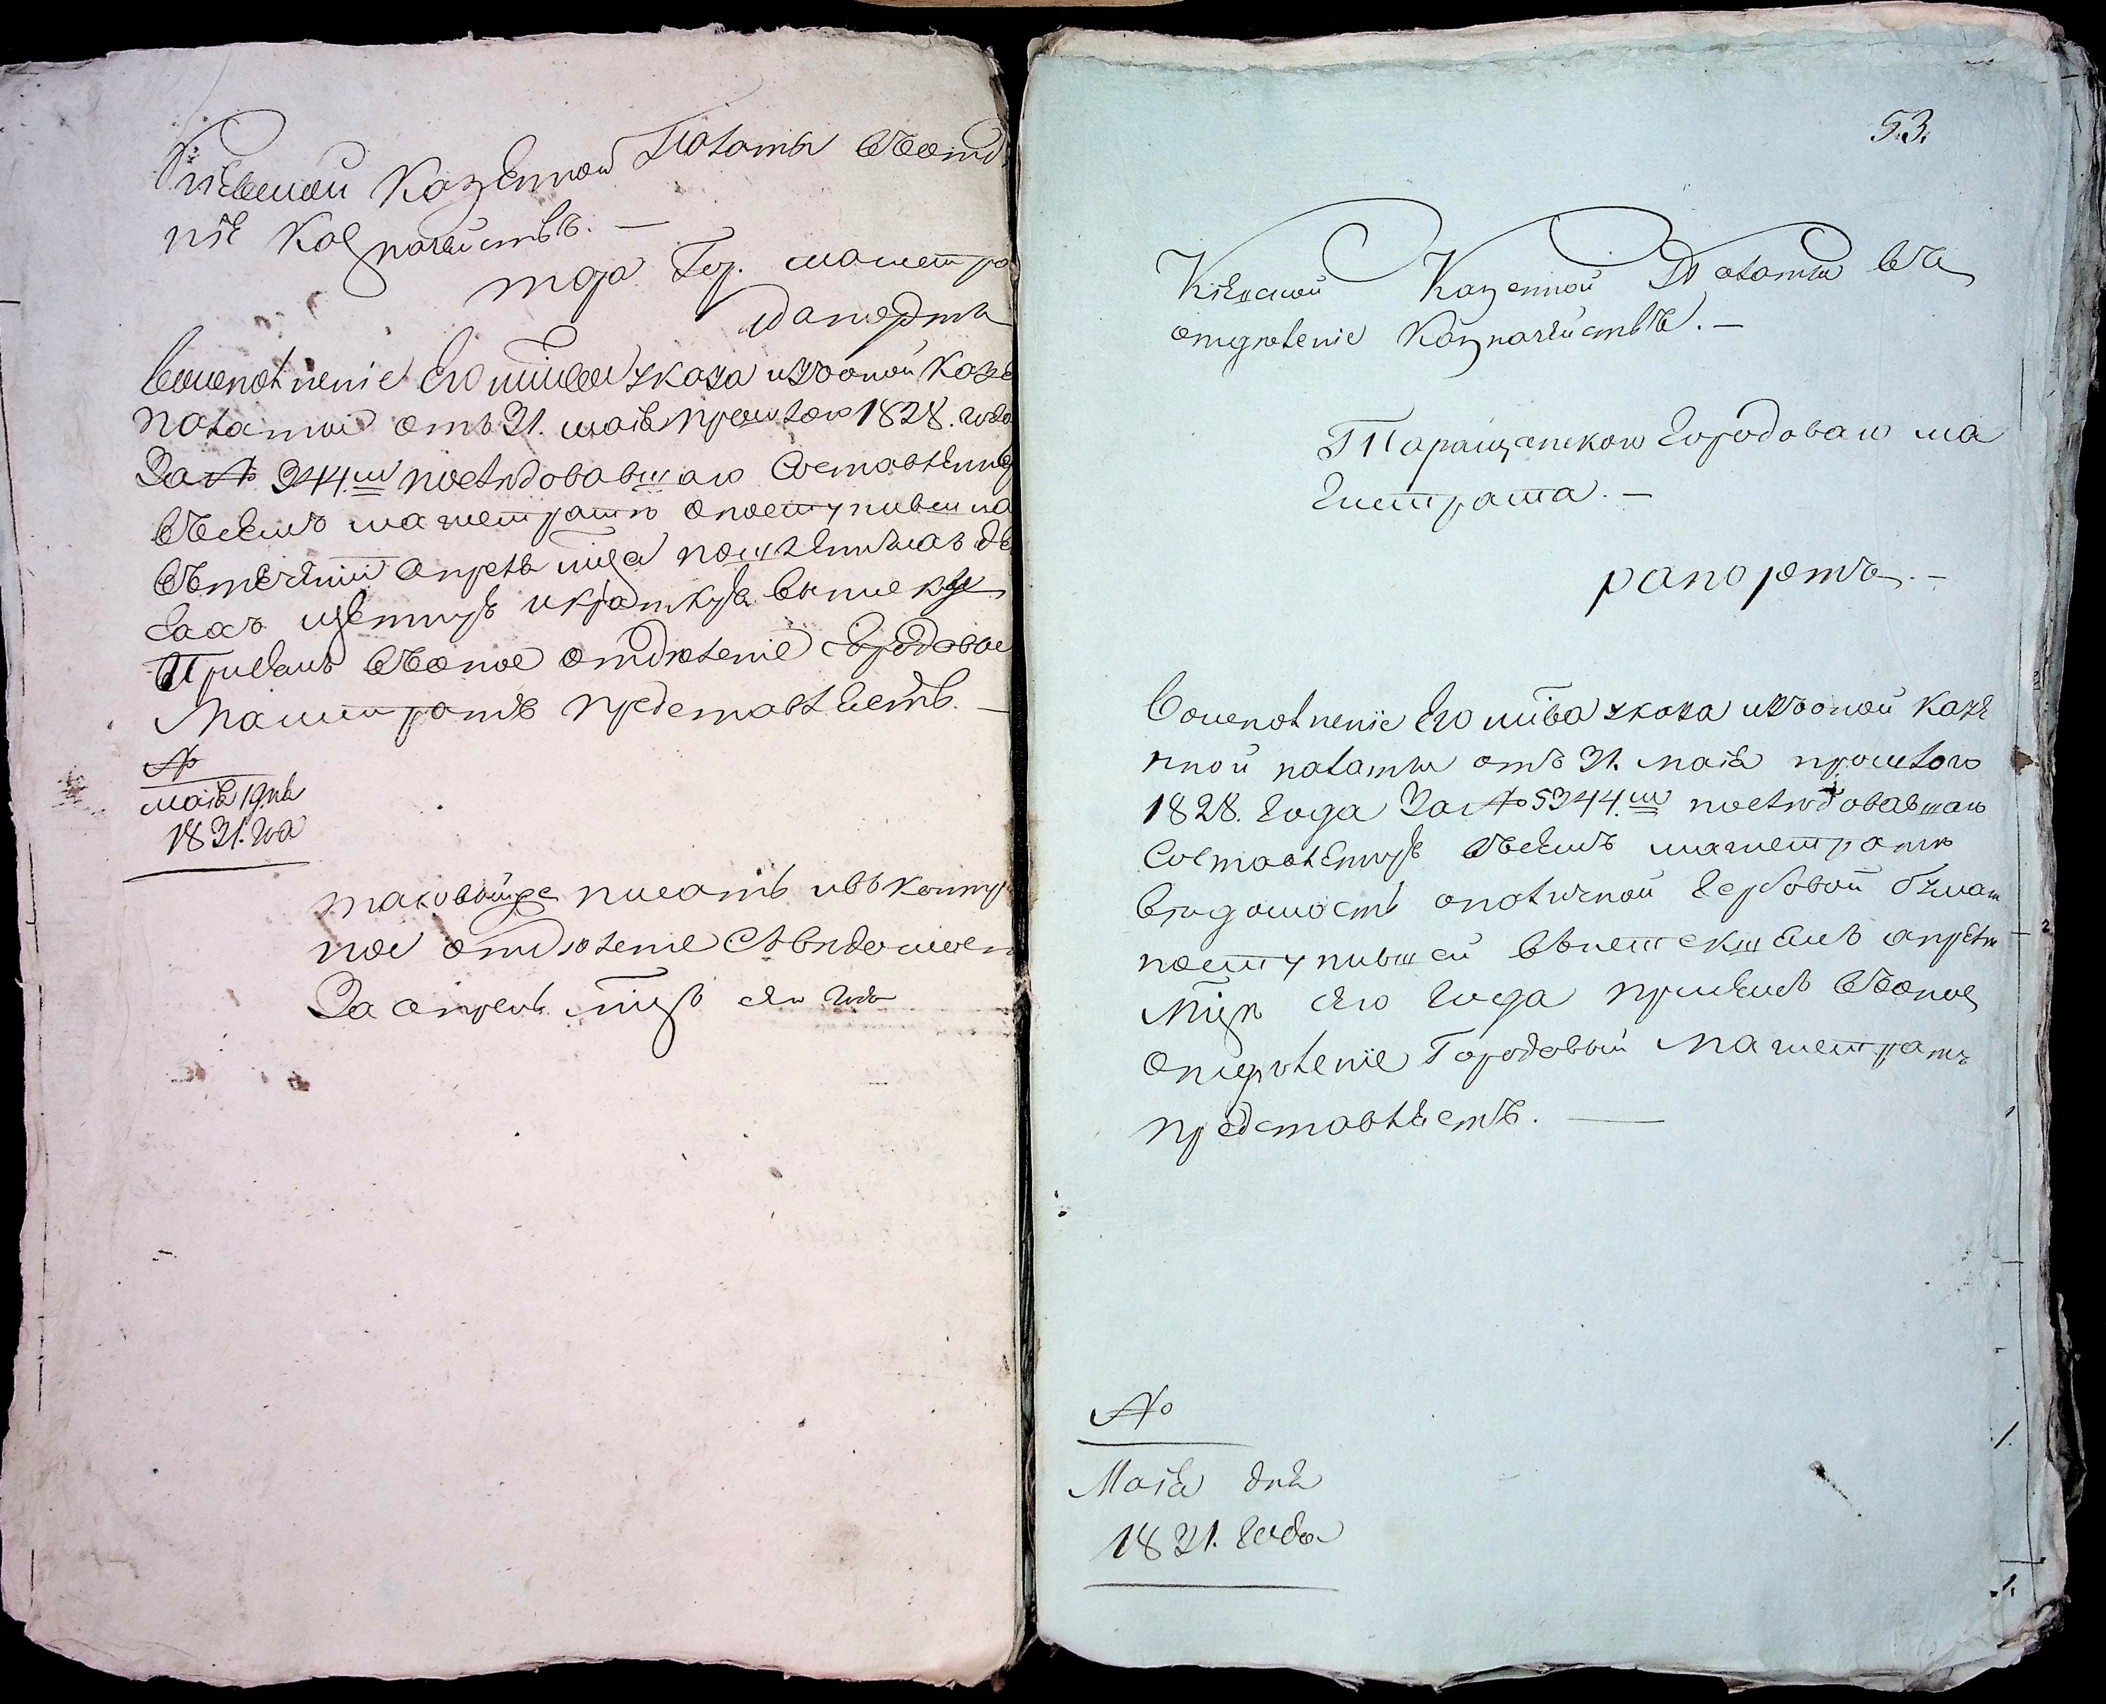 Кіевской Казенной Палаты въ отд
ніе Казначействъ. —
Тара. Гор. магистра
рапортъ
Во исполненіе Его ИМПВА указа изъ оной Казе
палаты отъ 31. маія прошлого 1828. года
За № 344.м последовавшаго Составленну
въ семъ магистрате о поступивши на
въ теченіи апреля мца пошлинахъ де
гахъ и краткую выписку
При семъ въ оное отделеніе Городовые
Магистратъ представляетъ. —
№
маія 19 дня
1831. года
таковый же писать и въ контр
ное отделеніе С ведомост
За апрель мцъ сего года
53.
Кіевской Казенной Палаты въ
отделеніе Казначействъ. —
Таращанского Городоваго ма
гистрата. —
рапортъ. —
Во исполненіе Его ИМПВА указа изъ оной Казе
нной палаты отъ 31. маія прошлого
1828. Года За № 5344.м последовавшаго
Составленную въ семъ магистрате
ведомость о наличной гербовой бумаги
поступившей въ истекшемъ апреле
Мце сего Года при семъ въ оное
Отделеніе Городовый Магистратъ
представляетъ. —
№
Маія дня
1831. Года